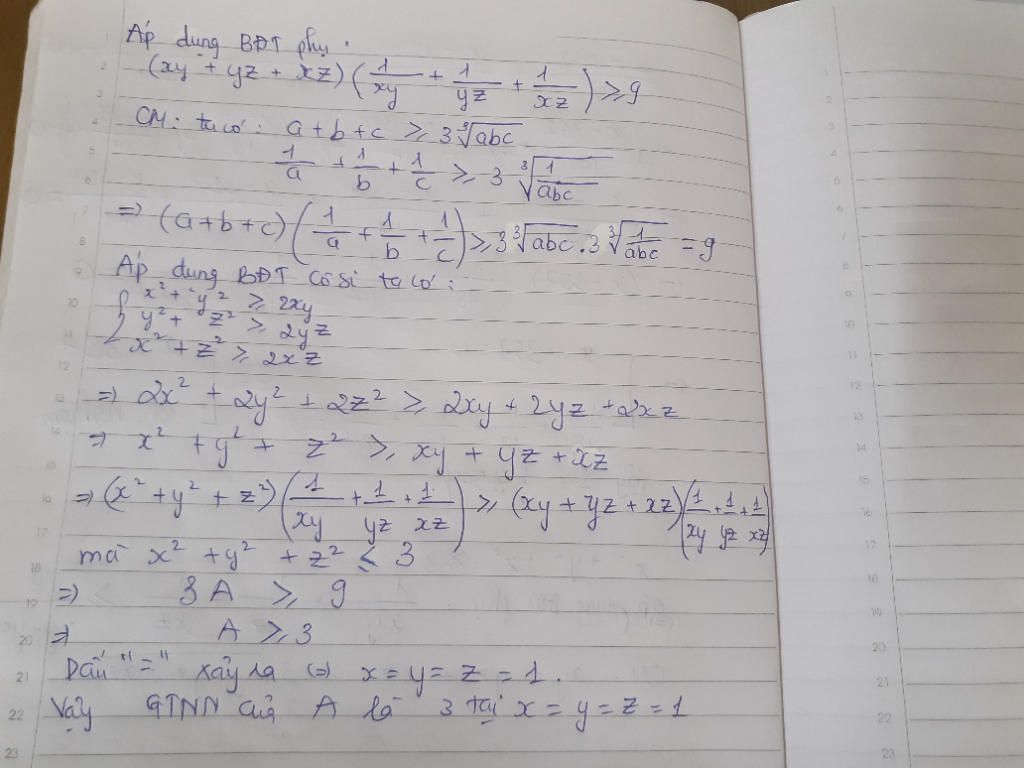 Áp dụng BĐT phụ:
(xy + yz + xz)(1/xy + 1/yz + 1/xz) ≥ 9
CM: ta có: a + b + c ≥ 3∛abc
1/a + 1/b + 1/c ≥ 3 ∛(1/abc)
=> (a+b+c)(1/a + 1/b + 1/c) ≥ 3∛abc . 3∛(1/abc) = 9
Áp dụng BĐT Cô si ta có:
{ x² + y² ≥ 2xy
y² + z² ≥ 2yz
x² + z² ≥ 2xz
=> 2x² + 2y² + 2z² ≥ 2xy + 2yz + 2xz
=> x² + y² + z² ≥ xy + yz + xz
=> (x² + y² + z²)(1/xy + 1/yz + 1/xz) ≥ (xy + yz + xz)(1/xy + 1/yz + 1/xz)
mà x² + y² + z² ≤ 3
=> 3A ≥ 9
=> A ≥ 3
Dấu "=" xảy ra <=> x = y = z = 1.
Vậy GTNN của A là 3 tại x = y = z = 1